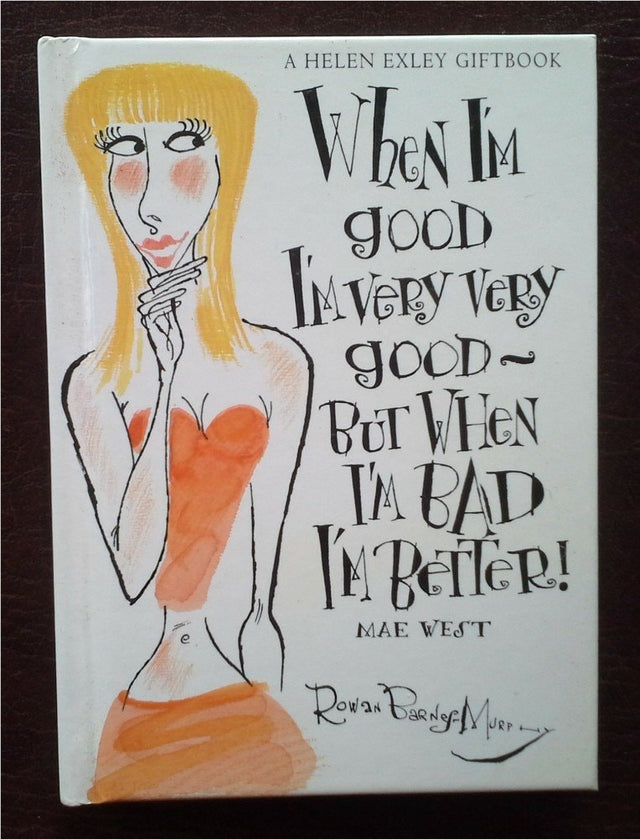 A HELEN EXLEY GIFTBOOK
WheN I'M
gooD
I'M VeRy VeRy
gooD~
BUT WHeN
I'M BAD
I'M BeTTeR!
MAE WEST
Rowan Barnes-Murphy